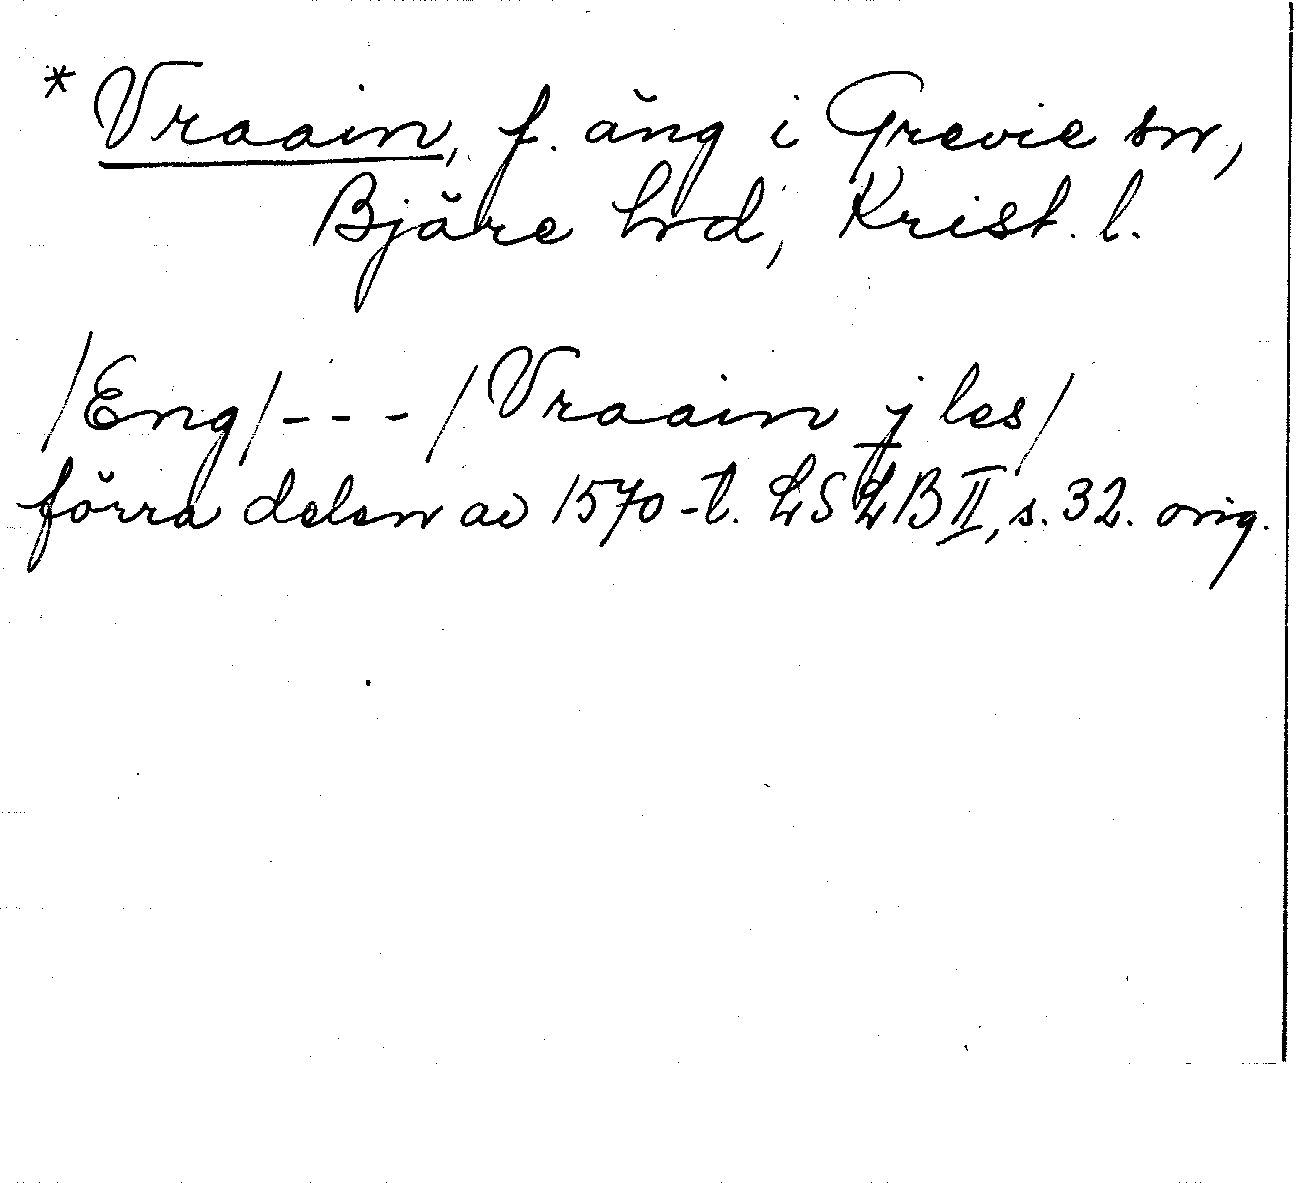 * Vraain, f. äng i Grevie sn,
Bjäre hrd, Krist. l.
/Eng/--- /Vraain j les/
förra delen av 1570-t. LSLB II, s. 32. orig.